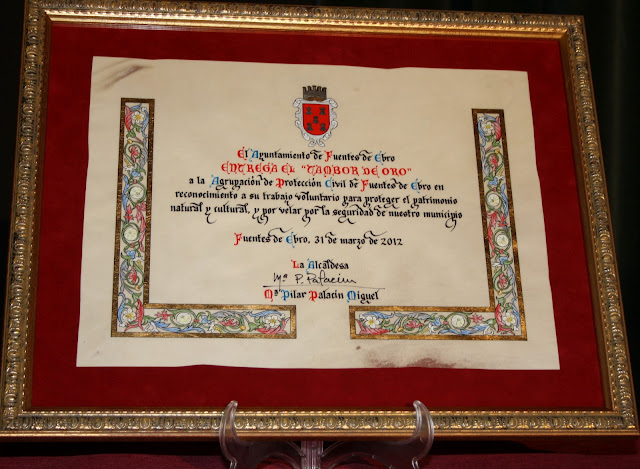 El Ayuntamiento de Fuentes de Ebro
ENTREGA EL "TAMBOR DE ORO"
a la Agrupación de Protección Civil de Fuentes de Ebro en
reconocimiento a su trabajo voluntario para proteger el patrimonio
natural y cultural, y por velar por la seguridad de nuestro municipio
Fuentes de Ebro, 31 de marzo de 2012
La Alcaldesa
Mª P. Palacín
Mª Pilar Palacín Miguel